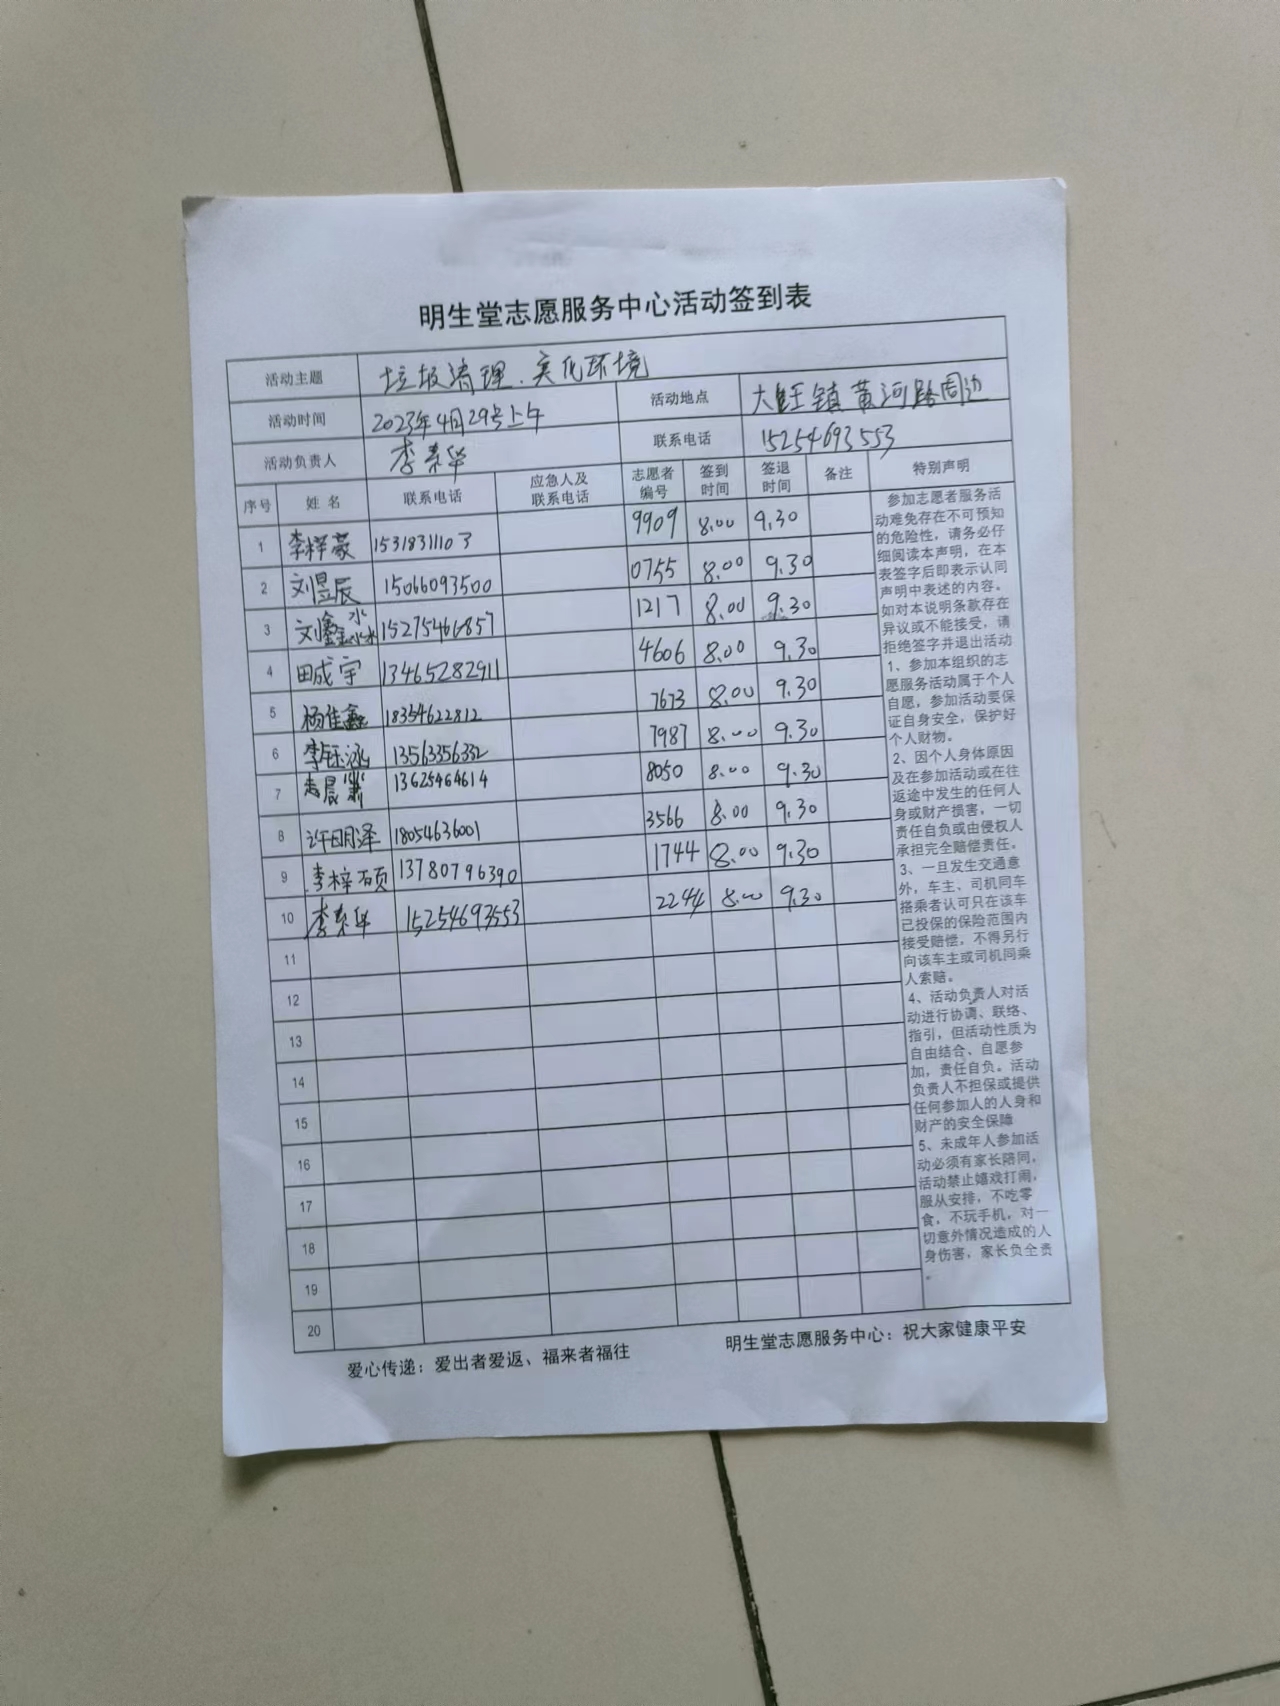 明生堂志愿服务中心活动签到表
活动主题 垃圾清理、美化环境
活动时间 2023年4月29号上午 活动地点 大王镇黄河路周边
活动负责人 李秦华 联系电话 15254693553
序号 姓名 联系电话 应急人及联系电话 志愿者编号 签到时间 签退时间 备注 特别声明
1 李梓豪 15318311103 9909 8:00 9.30
2 刘昱辰 15066093500 0755 8.00 9.30
3 刘鑫淼 15275466857 1217 8.00 9.30
4 田成宇 13465282911 4606 8.00 9.30
5 杨佳鑫 18354622812 7673 8.00 9.30
6 李钰涵 13563356332 7987 8.00 9.30
7 晨 13625464614 8050 8.00 9.30
8 许明泽 18054636001 3566 8.00 9.30
9 李梓硕 13780796390 1744 8.00 9.30
10 李秦华 15254693553 2244 8.00 9.30
11
12
13
14
15
16
17
18
19
20
参加志愿者服务活
动难免存在不可预知
的危险性，请务必仔
细阅读本声明，在本
表签字后即表示认同
声明中表述的内容。
如对本说明条款存在
异议或不能接受，请
拒绝签字并退出活动
1、参加本组织的志
愿服务活动属于个人
自愿，参加活动要保
证自身安全，保护好
个人财物。
2、因个人身体原因
及在参加活动或在往
返途中发生的任何人
身或财产损害，一切
责任自负或由侵权人
承担完全赔偿责任。
3、一旦发生交通意
外，车主、司机同车
搭乘者认可只在该车
已投保的保险范围内
接受赔偿，不得另行
向该车主或司机同乘
人索赔。
4、活动负责人对活
动进行协调、联络、
指引，但活动性质为
自由结合、自愿参
加，责任自负。活动
负责人不担保或提供
任何参加人的人身和
财产的安全保障
5、未成年人参加活
动必须有家长陪同，
活动禁止嬉戏打闹，
服从安排，不吃零
食，不玩手机，对一
切意外情况造成的人
身伤害，家长负全责
。
爱心传递：爱出者爱返、福来者福往 明生堂志愿服务中心：祝大家健康平安